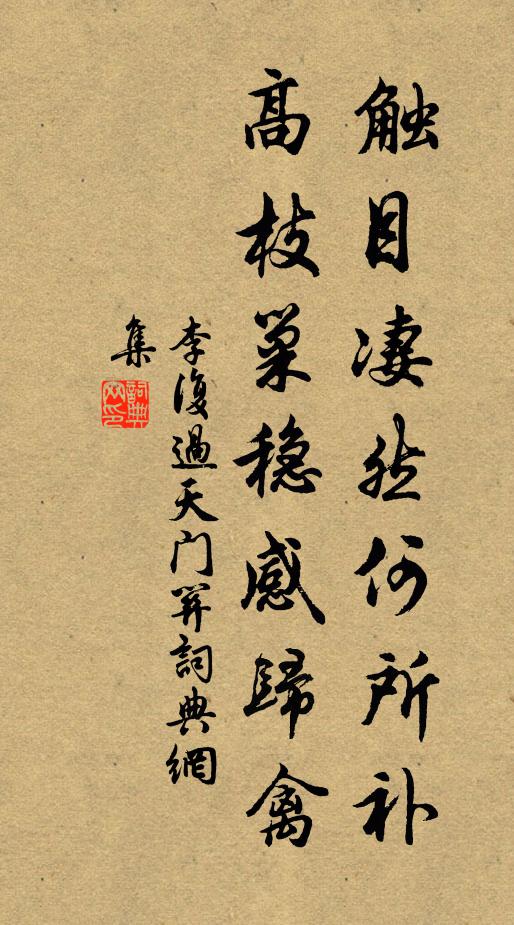 触目凄然何所补
高枝巢稳感歸禽
李復過天门關詞典網
集
詞典网印